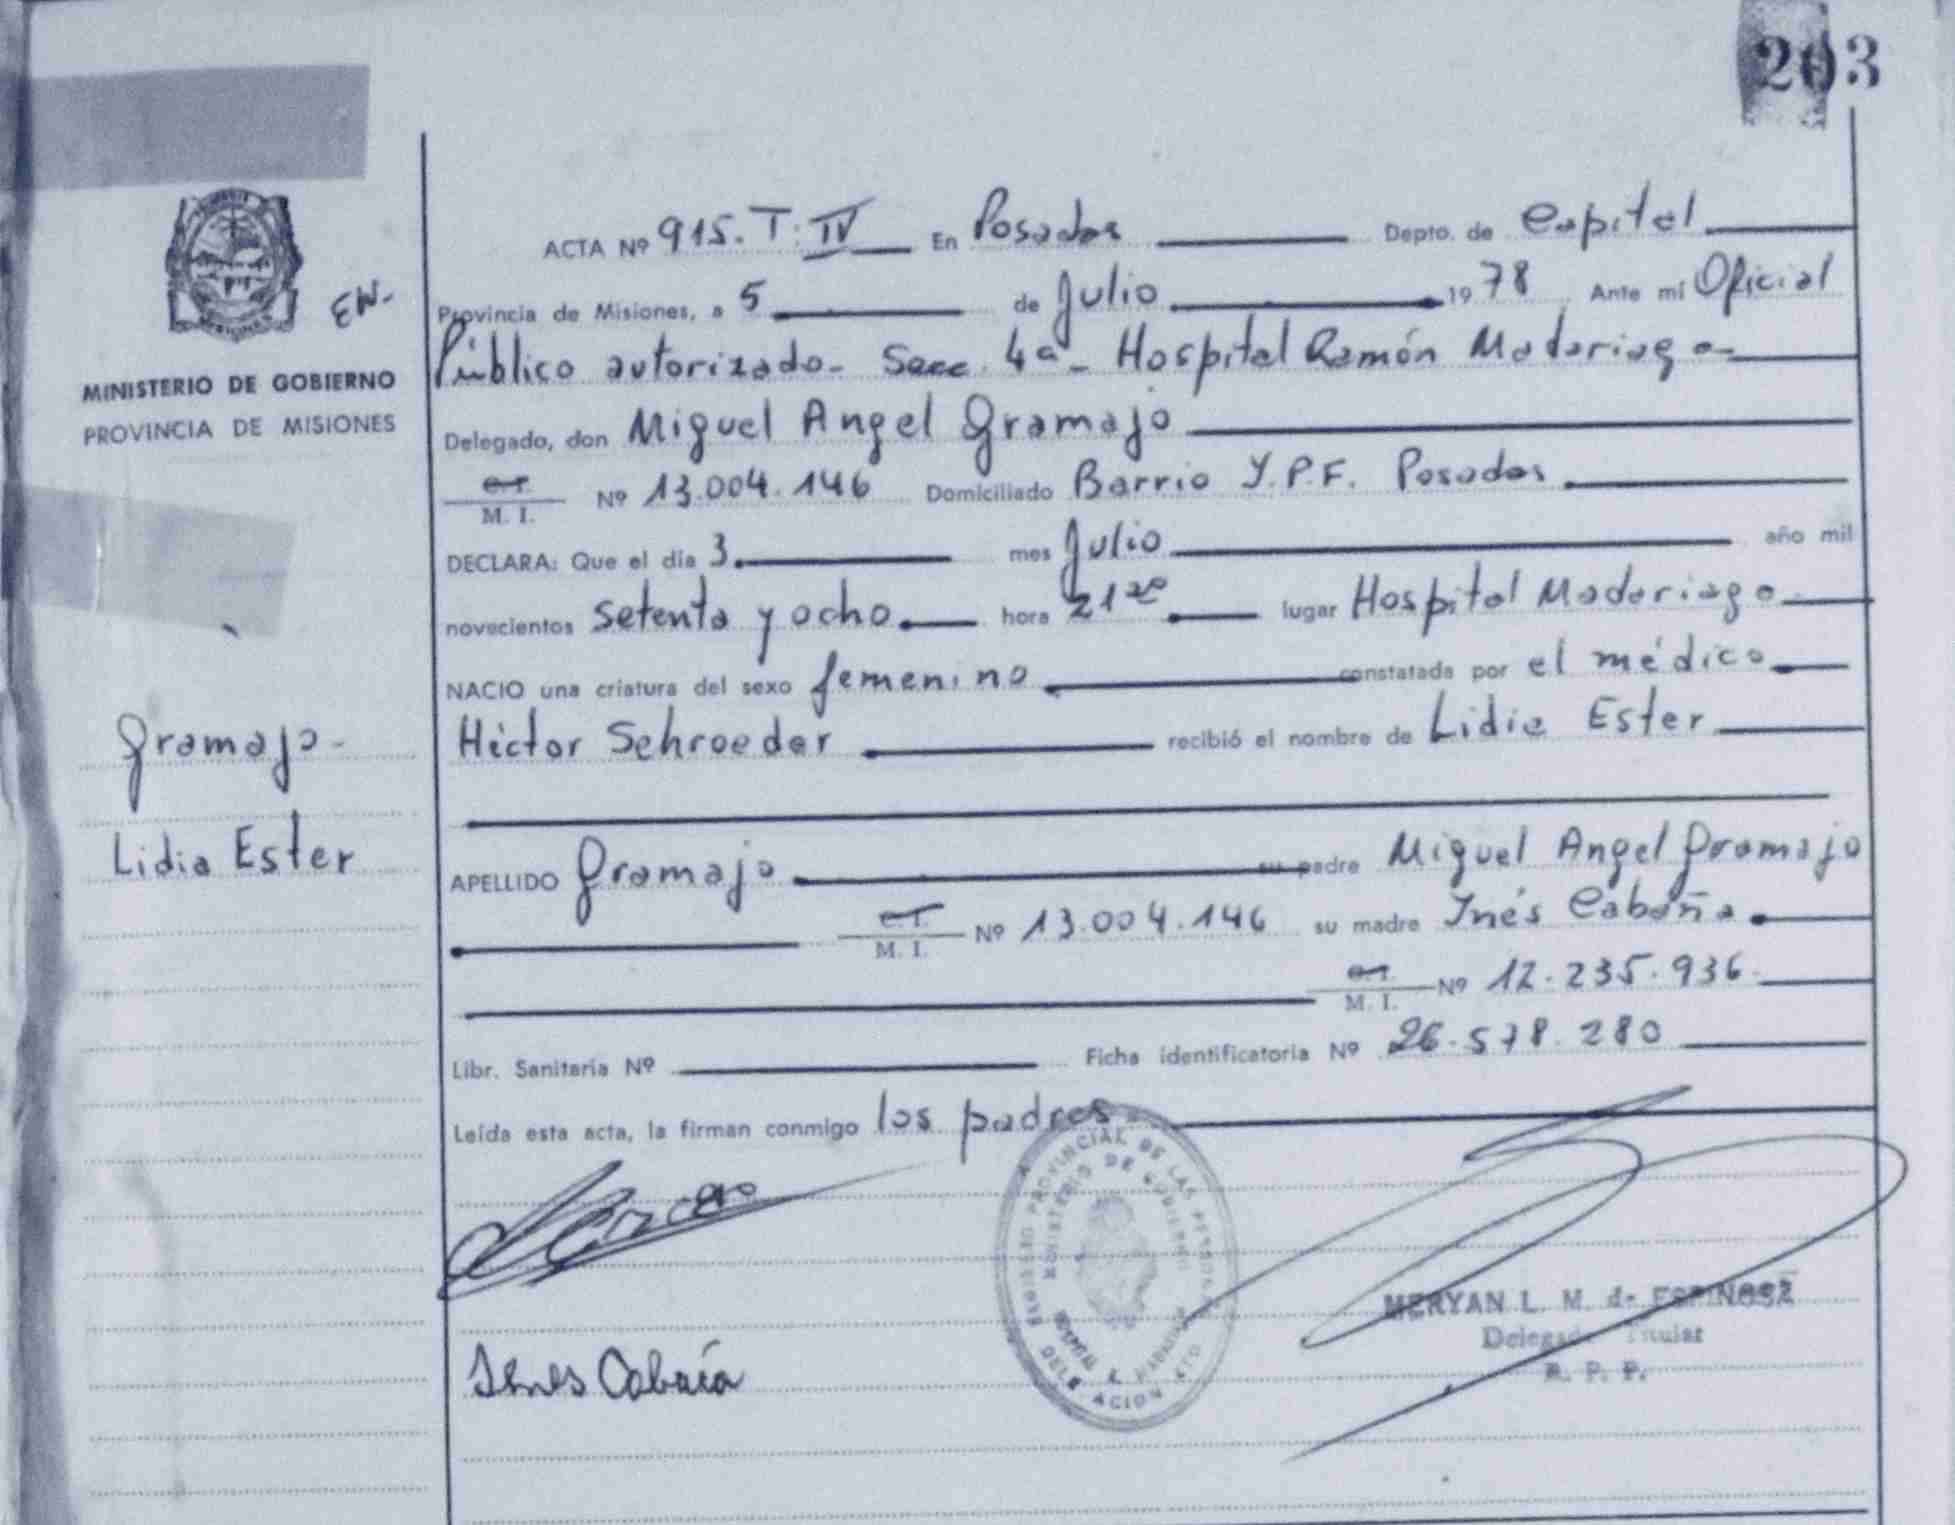 203
ACTA Nº 915. T. IV En Posadas Depto. de Capital
Provincia de Misiones, a 5 de Julio 1978 Ante mí Oficial
Público autorizado - Secc. 4ª - Hospital Ramón Madariaga -
Delegado, don Miguel Angel Gramajo
C.I.
M. I. Nº 13.004.146 Domiciliado Barrio Y.P.F. Posadas
DECLARA: Que el día 3 mes Julio año mil
novecientos setenta y ocho hora 21 lugar Hospital Madariaga
NACIO una criatura del sexo femenino constatada por el médico
Héctor Schroeder recibió el nombre de Lidia Ester
APELLIDO Gramajo su padre Miguel Angel Gramajo
C.I.
M. I. Nº 13.004.146 su madre Inés Cabaña
C.I.
M. I. Nº 12.235.936
Libr. Sanitaria Nº Ficha identificatoria Nº 26.578.280
Leída esta acta, la firman conmigo los padres
EW-
MINISTERIO DE GOBIERNO
PROVINCIA DE MISIONES
Gramajo -
Lidia Ester
REGISTRO PROVINCIAL DE LAS PERSONAS
MINISTERIO DE GOBIERNO
MERYAN L. M. de ESPINOSA
Delegada Titular
R. P. P.
Ines Cabaña